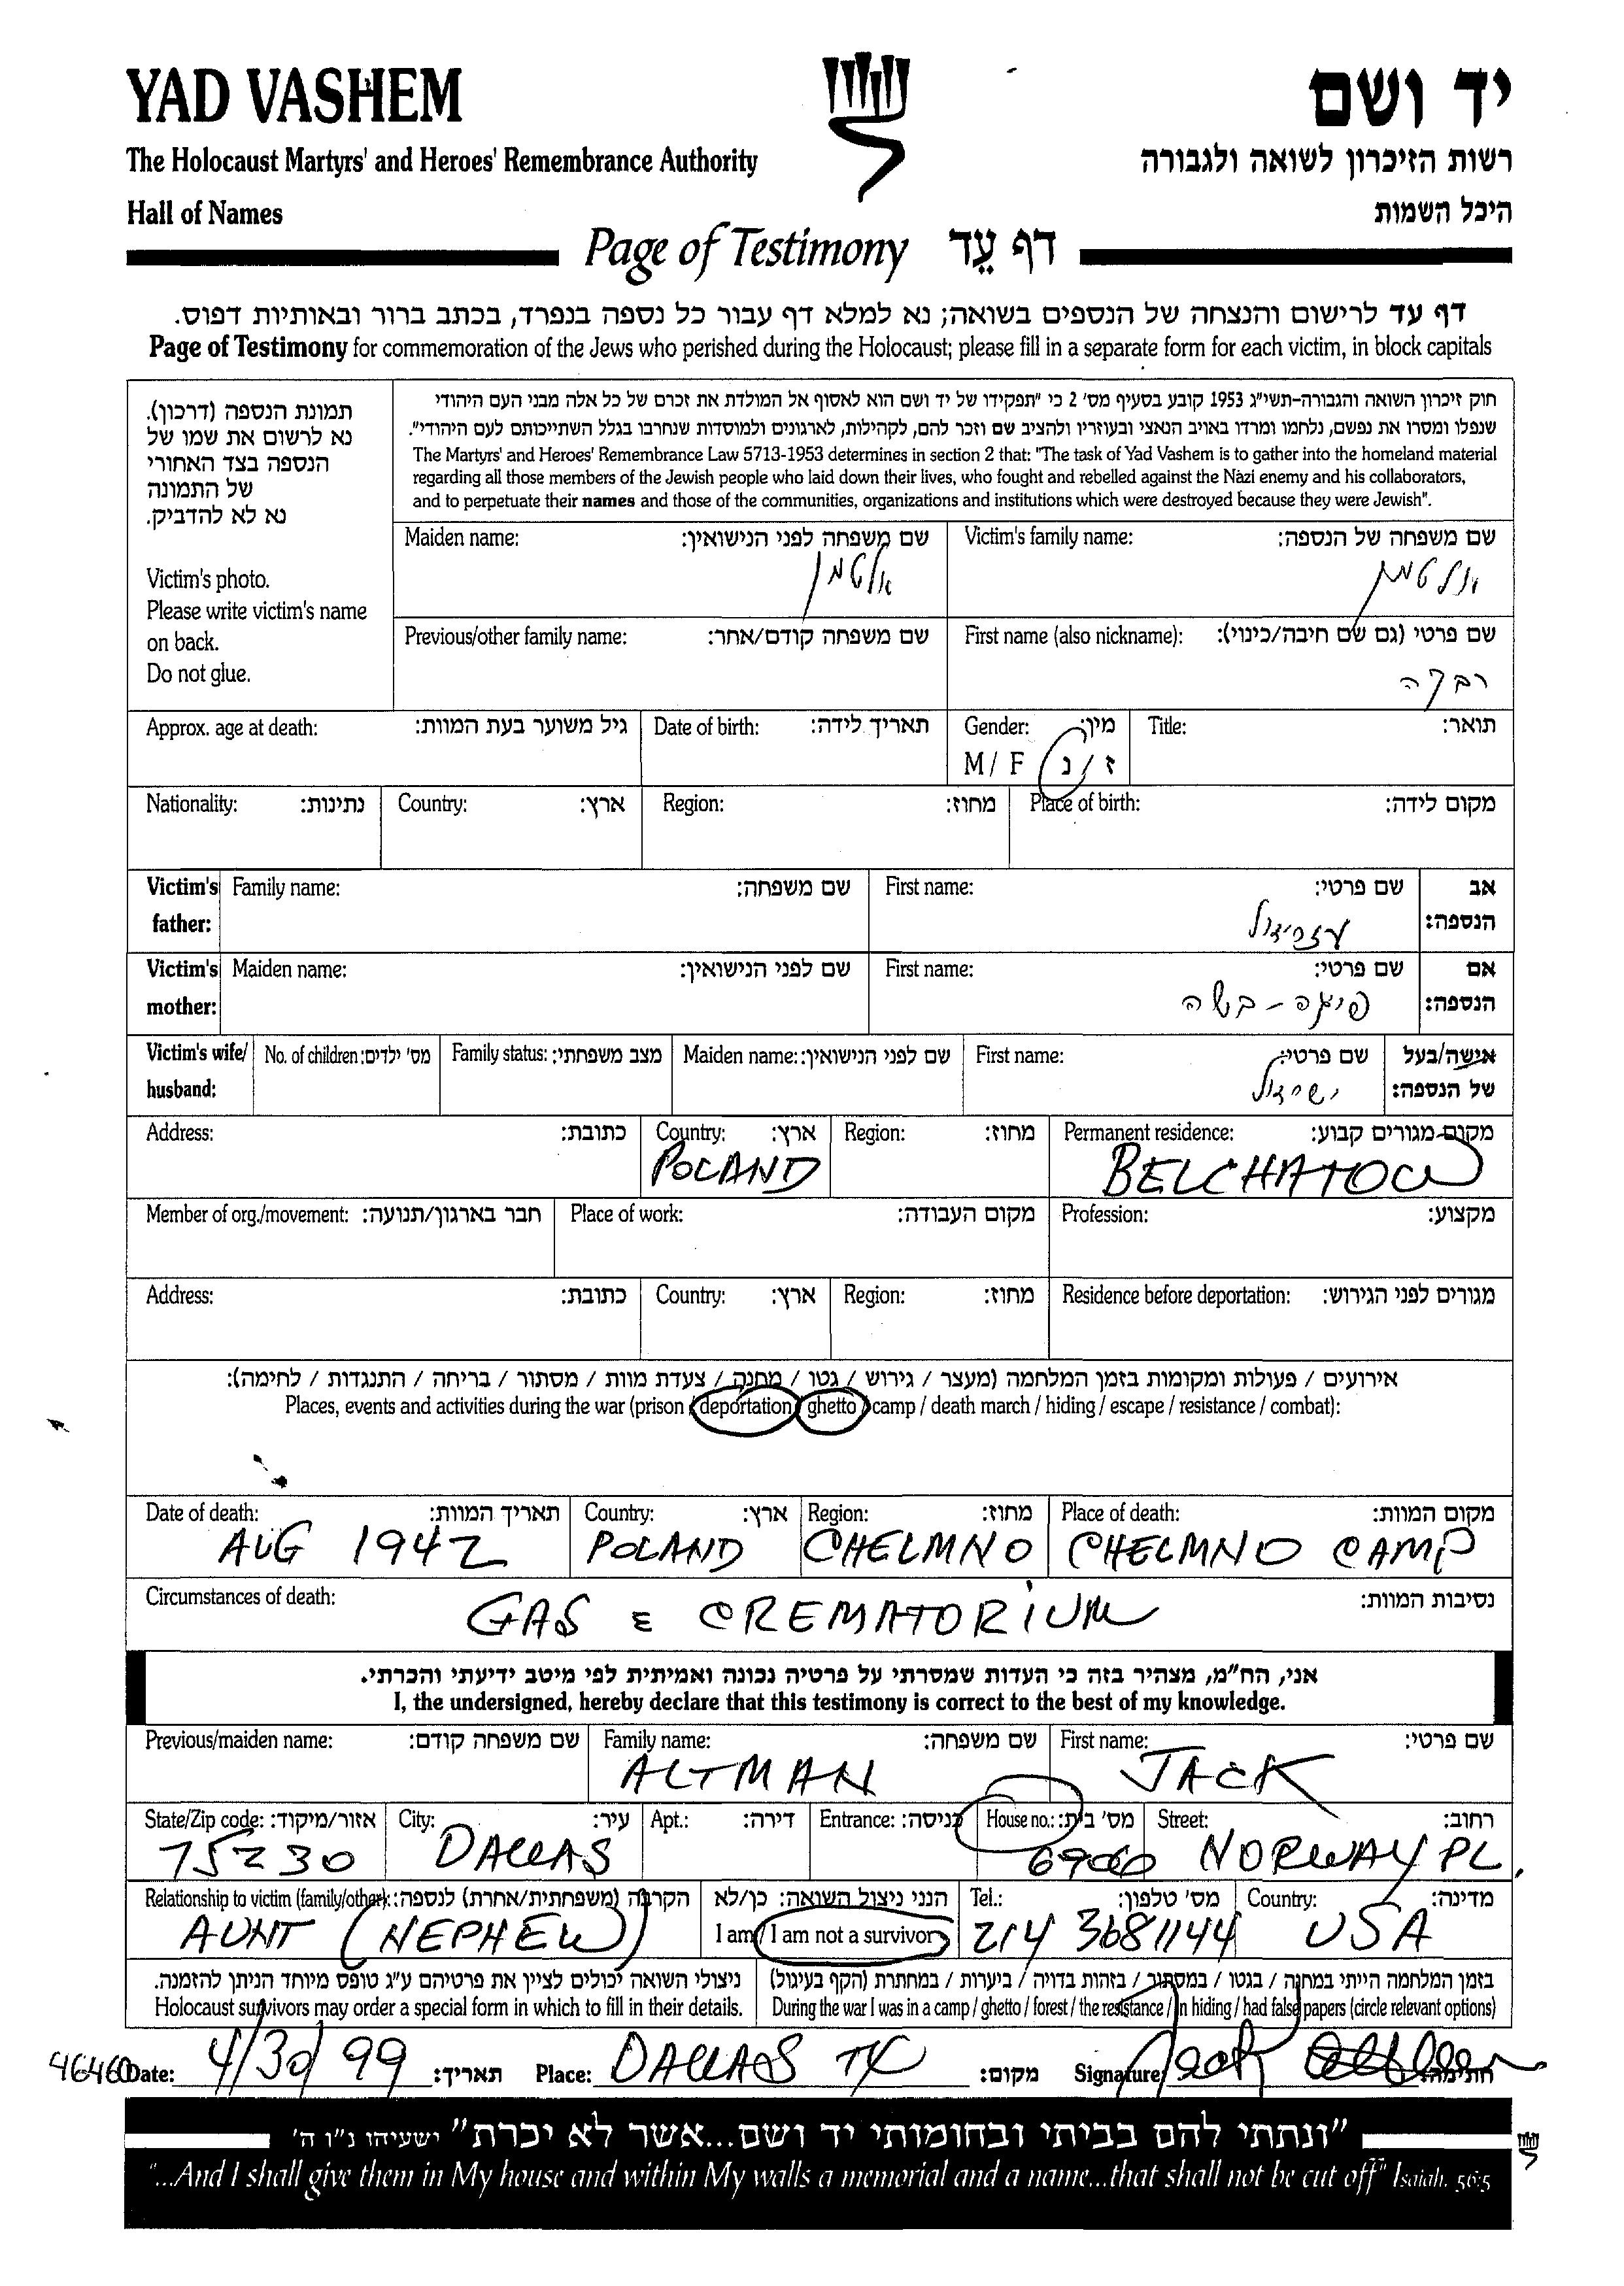 YAD VASHEM
יד ושם
The Holocaust Martyrs' and Heroes' Remembrance Authority
רשות הזיכרון לשואה ולגבורה
Hall of Names
היכל השמות
Page of Testimony דף עֵד
דף עד לרישום והנצחה של הנספים בשואה; נא למלא דף עבור כל נספה בנפרד, בכתב ברור ובאותיות דפוס.
Page of Testimony for commemoration of the Jews who perished during the Holocaust; please fill in a separate form for each victim, in block capitals
תמונת הנספה (דרכון).
נא לרשום את שמו של
הנספה בצד האחורי
של התמונה
נא לא להדביק.
Victim's photo.
Please write victim's name
on back.
Do not glue.
חוק זיכרון השואה והגבורה-תשי"ג 1953 קובע בסעיף מס' 2 כי "תפקידו של יד ושם הוא לאסוף אל המולדת את זכרם של כל אלה מבני העם היהודי
שנפלו ומסרו את נפשם, נלחמו ומרדו באויב הנאצי ובעוזריו ולהציב שם וזכר להם, לקהילות, לארגונים ולמוסדות שנחרבו בגלל השתייכותם לעם היהודי".
The Martyrs' and Heroes' Remembrance Law 5713-1953 determines in section 2 that: "The task of Yad Vashem is to gather into the homeland material
regarding all those members of the Jewish people who laid down their lives, who fought and rebelled against the Nazi enemy and his collaborators,
and to perpetuate their names and those of the communities, organizations and institutions which were destroyed because they were Jewish".
Maiden name: שם משפחה לפני הנישואין:
אלטמן
Victim's family name: שם משפחה של הנספה:
אלטמן
Previous/other family name: שם משפחה קודם/אחר:
First name (also nickname): שם פרטי (גם שם חיבה/כינוי):
רבקה
Approx. age at death: גיל משוער בעת המוות:
Date of birth: תאריך לידה:
Gender: מין:
M / F ז / נ
Title: תואר:
Nationality: נתינות:
Country: ארץ:
Region: מחוז:
Place of birth: מקום לידה:
Victim's father: אב הנספה:
Family name: שם משפחה:
First name: שם פרטי:
עזריאל
Victim's mother: אם הנספה:
Maiden name: שם לפני הנישואין:
First name: שם פרטי:
Victim's wife/husband: אישה/בעל של הנספה:
No. of children: מס' ילדים:
Family status: מצב משפחתי:
Maiden name: שם לפני הנישואין:
First name: שם פרטי:
ישראל
Address: כתובת:
Country: ארץ:
POLAND
Region: מחוז:
Permanent residence: מקום מגורים קבוע:
BELCHATOW
Member of org./movement: חבר בארגון/תנועה:
Place of work: מקום העבודה:
Profession: מקצוע:
Address: כתובת:
Country: ארץ:
Region: מחוז:
Residence before deportation: מגורים לפני הגירוש:
אירועים / פעולות ומקומות בזמן המלחמה (מעצר / גירוש / גטו / מחנה / צעדת מוות / מסתור / בריחה / התנגדות / לחימה):
Places, events and activities during the war (prison / deportation / ghetto / camp / death march / hiding / escape / resistance / combat):
Date of death: תאריך המוות:
AUG 1942
Country: ארץ:
POLAND
Region: מחוז:
CHELMNO
Place of death: מקום המוות:
CHELMNO CAMP
Circumstances of death: נסיבות המוות:
GAS & CREMATORIUM
אני, הח"מ, מצהיר בזה כי העדות שמסרתי על פרטיה נכונה ואמיתית לפי מיטב ידיעתי והכרתי.
I, the undersigned, hereby declare that this testimony is correct to the best of my knowledge.
Previous/maiden name: שם משפחה קודם:
Family name: שם משפחה:
ALTMAN
First name: שם פרטי:
JACK
State/Zip code: אזור/מיקוד:
75230
City: עיר:
DALLAS
Apt.: דירה:
Entrance: כניסה:
House no.: מס' בית:
6900
Street: רחוב:
NORWAY PL.
Relationship to victim (family/other): הקרבה (משפחתית/אחרת) לנספה:
AUNT (NEPHEW)
הנני ניצול השואה: כן/לא
I am / I am not a survivor
Tel.: מס' טלפון:
214 3681144
Country: מדינה:
USA
ניצולי השואה יכולים לציין את פרטיהם ע"ג טופס מיוחד הניתן להזמנה.
Holocaust survivors may order a special form in which to fill in their details.
בזמן המלחמה הייתי במחנה / בגטו / במסתור / בזהות בדויה / ביערות / במחתרת (הקף בעיגול)
During the war I was in a camp / ghetto / forest / the resistance / in hiding / had false papers (circle relevant options)
46460
Date: 4/30/99 תאריך:
Place: DALLAS TX מקום:
Signature: Jack Altman חתימה:
"ונתתי להם בביתי ובחומותי יד ושם...אשר לא יכרת" ישעיהו נ"ו ה'
"...And I shall give them in My house and within My walls a memorial and a name...that shall not be cut off" Isaiah, 56:5